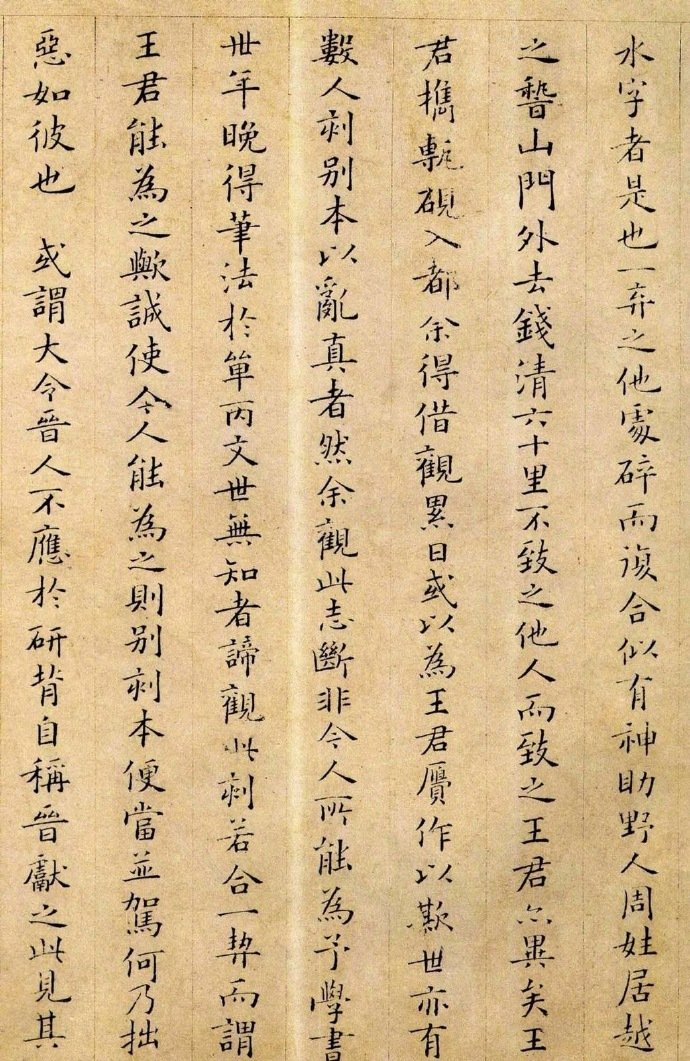 水字者是也一弃之他處碎而復合似有神助野人周姓居越
之瞀山門外去錢清六十里不致之他人而致之王君亦異矣王
君攜甎硯入都余得借觀累日或以為王君贗作以欺世亦有
數人刻別本以亂真者然余觀此志斷非今人所能為予學書
丗年晚得筆法於單丙文世無知者諦觀此刻若合一契而謂
王君能為之歟誠使今人能為之則別刻本便當並駕何乃拙
惡如彼也 或謂大令晉人不應於硏背自稱晉獻之此見其